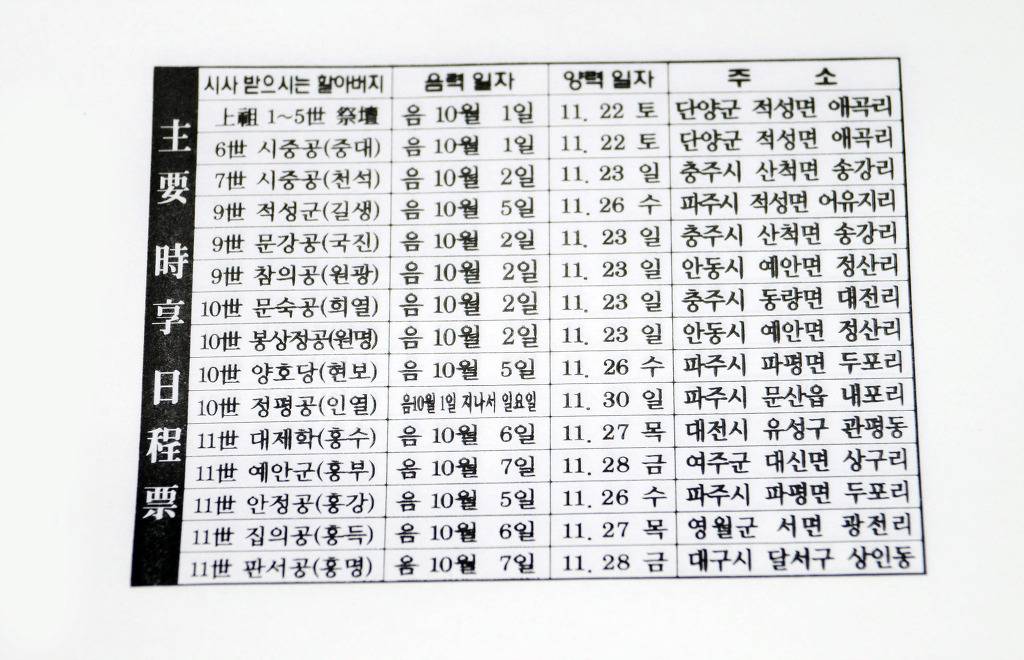 主要 時享日程票
시사 받으시는 할아버지 음력 일자 양력 일자 주 소
上祖 1~5世 祭壇 음 10월 1일 11. 22 토 단양군 적성면 애곡리
6世 시중공(중대) 음 10월 1일 11. 22 토 단양군 적성면 애곡리
7世 시중공(천석) 음 10월 2일 11. 23 일 충주시 산척면 송강리
9世 적성군(길생) 음 10월 5일 11. 26 수 파주시 적성면 어유지리
9世 문강공(국진) 음 10월 2일 11. 23 일 충주시 산척면 송강리
9世 참의공(원광) 음 10월 2일 11. 23 일 안동시 예안면 정산리
10世 문숙공(희열) 음 10월 2일 11. 23 일 충주시 동량면 대전리
10世 봉상정공(원명) 음 10월 2일 11. 23 일 안동시 예안면 정산리
10世 양호당(현보) 음 10월 5일 11. 26 수 파주시 파평면 두포리
10世 정평공(인열) 음10월 1일 지나서 일요일 11. 30 일 파주시 문산읍 내포리
11世 대제학(홍수) 음 10월 6일 11. 27 목 대전시 유성구 관평동
11世 예안군(홍부) 음 10월 7일 11. 28 금 여주군 대신면 상구리
11世 안정공(홍강) 음 10월 5일 11. 26 수 파주시 파평면 두포리
11世 집의공(홍득) 음 10월 6일 11. 27 목 영월군 서면 광전리
11世 판서공(홍명) 음 10월 7일 11. 28 금 대구시 달서구 상인동